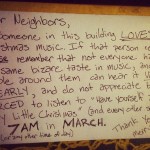 Dear Neighbors,
Someone in this building LOVES
Christmas music. If that person
remember that not everyone ha
same bizarre taste in music, and
ple around them can hear it
EARLY, and do not appreciate
FORCED to listen to "Have Yourself
ry Little Christmas (and every other
7AM in MARCH.
(or any other time of day)
Thank